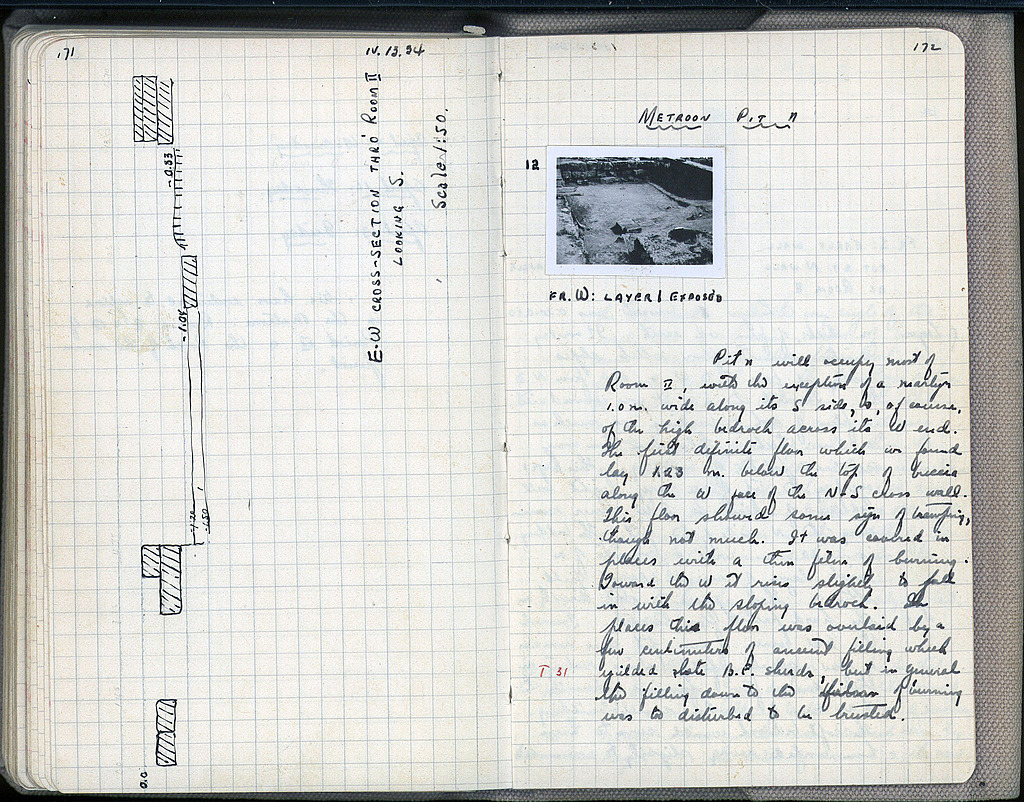 171
IV. 13.34
E-W CROSS-SECTION THRO' ROOM II
LOOKING S.
Scale 1:50.
-0.33
-1.04
-1.22
-1.50
0.0
172
METROON PIT N
12
FR. W: LAYER 1 EXPOSED
Pit n will occupy most of
Room II, with the exception of a martyr
1.0 m. wide along its S side, &, of course,
of the high bedrock across its W end.
The first definite floor which we found
lay 1.23 m. below the top of breccia
along the W face of the N-S cross wall.
This floor showed some sign of tramping,
though not much. It was covered in
places with a thin film of burning.
Toward the W it rises slightly to fall
in with the sloping bedrock. In
places this floor was overlaid by a
few centimeters of ancient filling which
T 31
yielded late B.C. sherds, but in general
the filling down to the of burning
was too disturbed to be trusted.